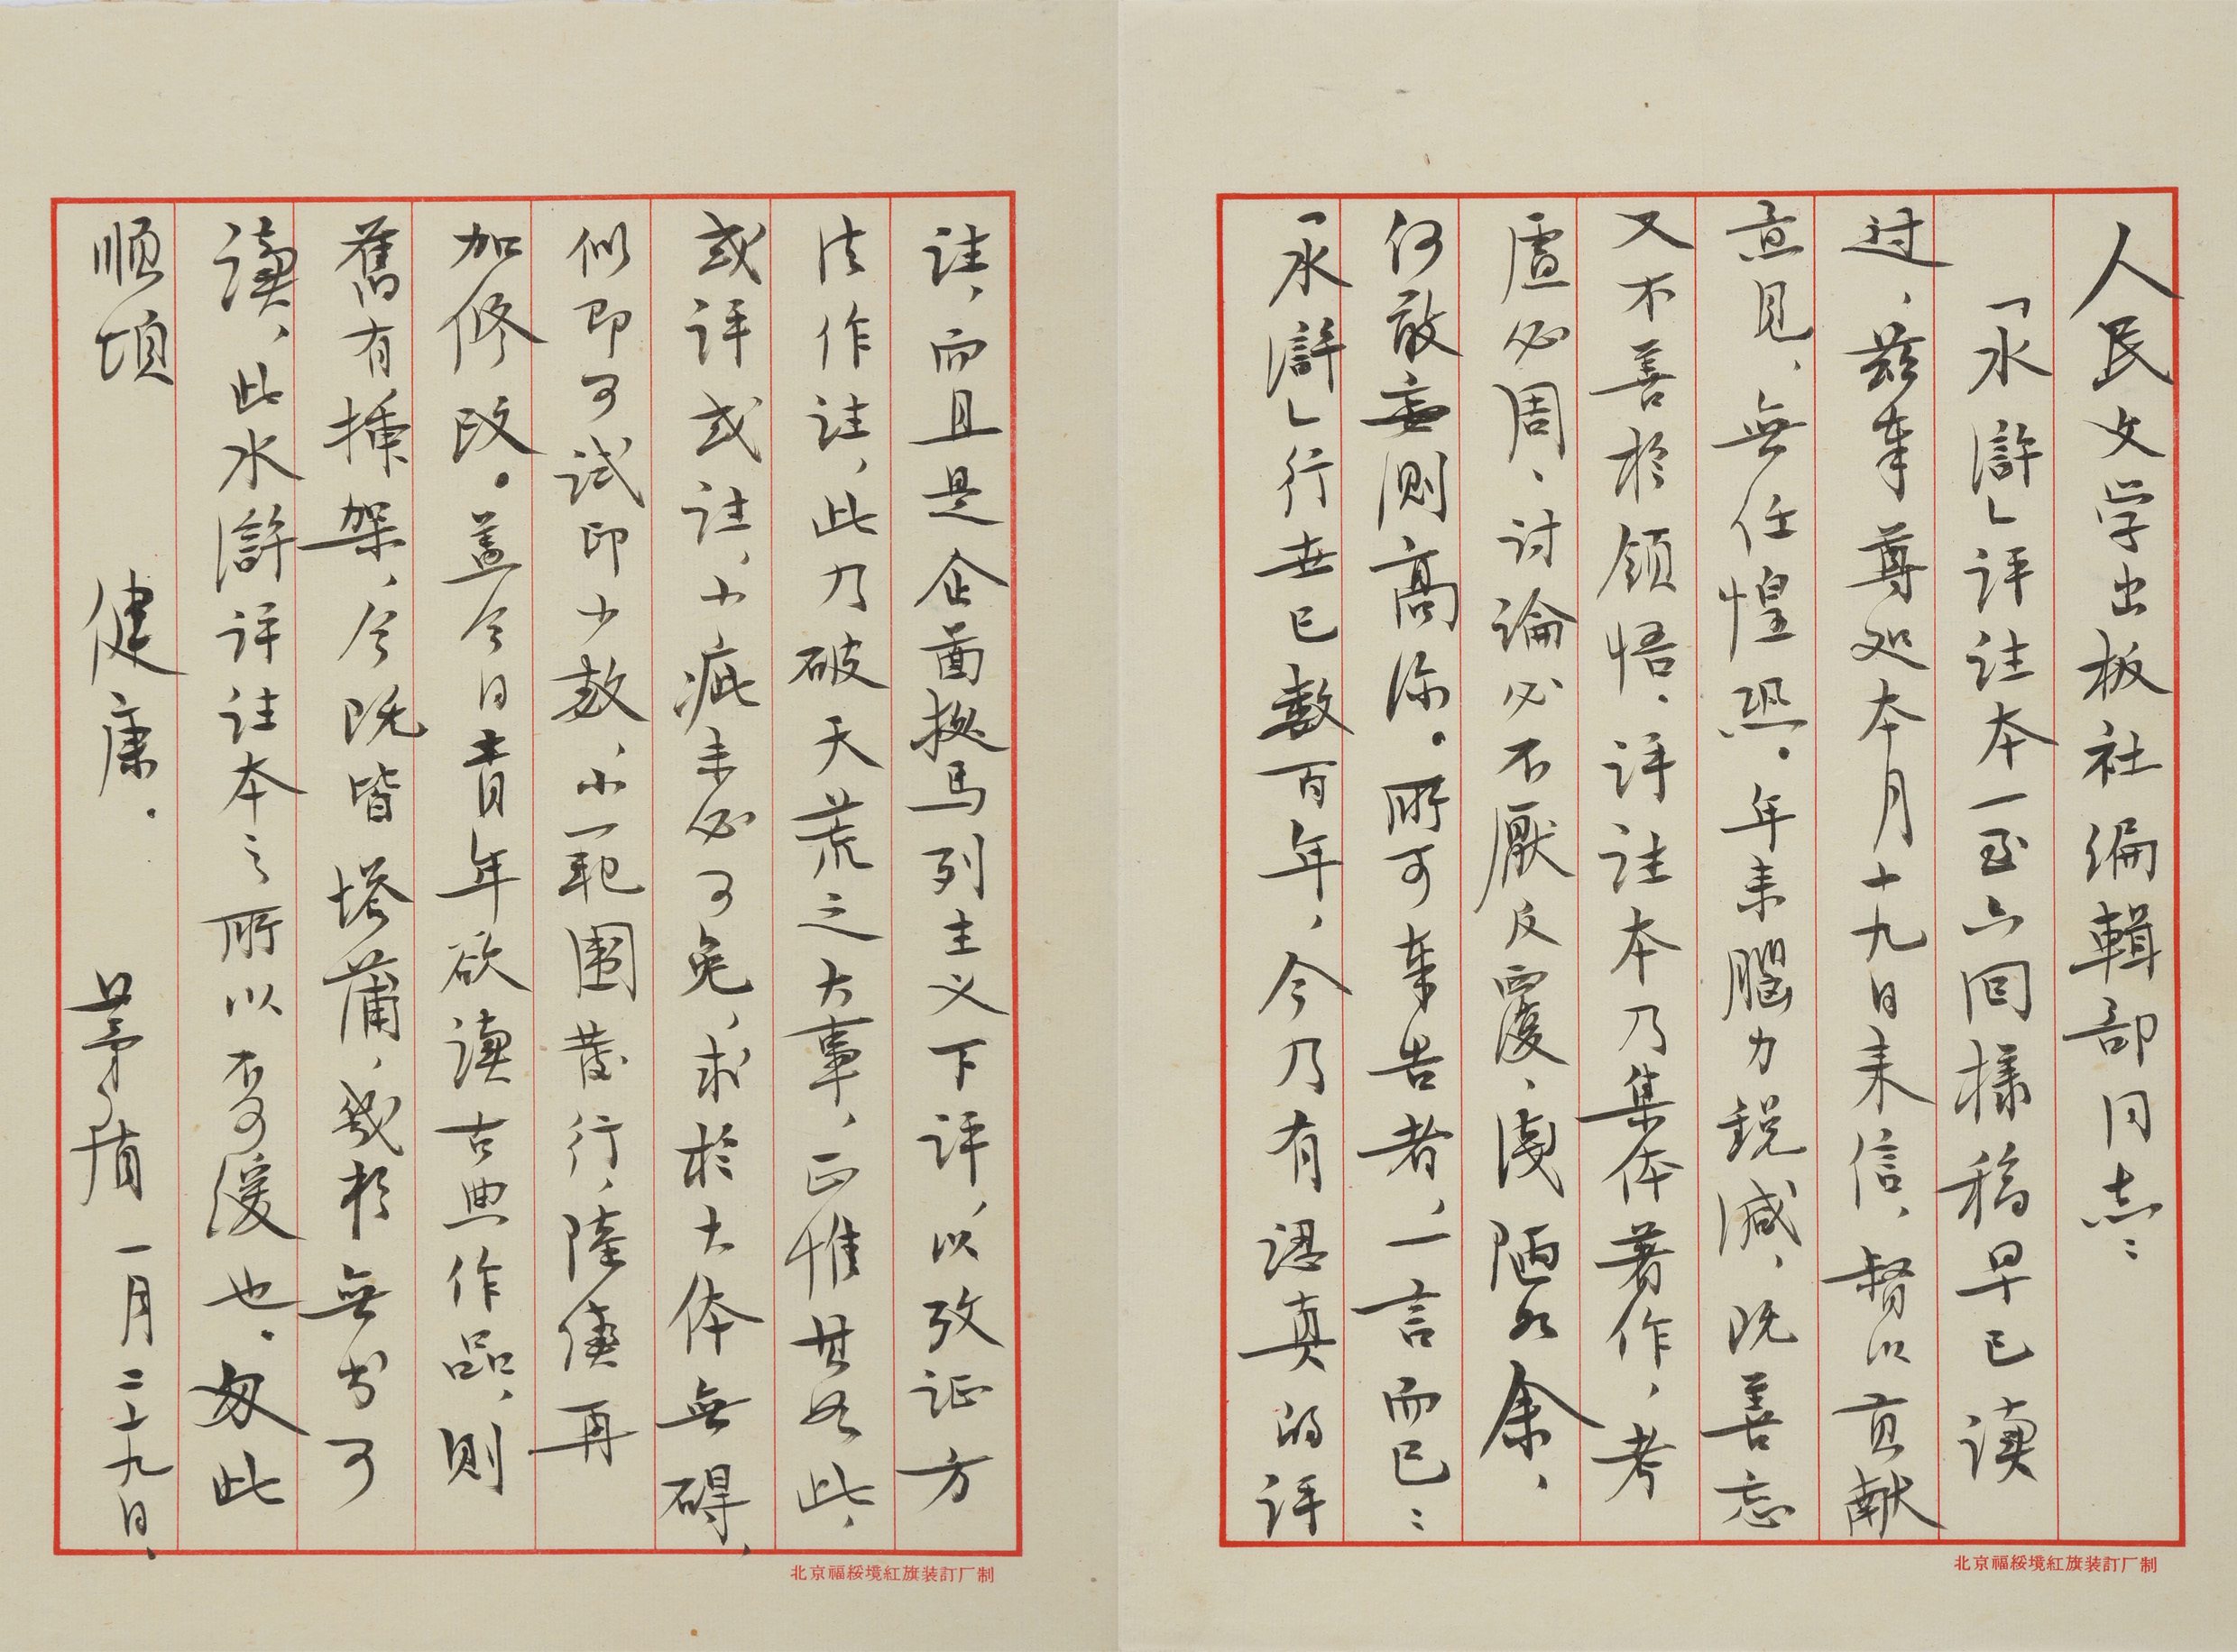 人民文学出板社编輯部同志：
「水滸」评註本一至六回樣稿早已读
过，兹奉尊处本月十九日来信，督以贡献
意見，無任惶恐。年来腦力鋭減，既善忘
又不善於領悟，评註本乃集体著作，考
慮必周，讨論必不厭反覆，淺陋如余，
何敢妄測高深。所可奉告者，一言而已：
「水滸」行世已數百年，今乃有認真的评
註，而且是企啚据马列主义下评，以攷证方
法作註，此乃破天荒之大事，正惟其如此，
或评或註，小疵未必可免，求於大体無碍，
似即可试印少数，小範围發行，陸續再
加修改。盖今日青年欲读古典作品，則
舊有插架，今既皆塔蒲，幾於無书可
讀，此水滸评註本之所以不可缓也。匆此
顺頌 健康。 茅盾 一月二十九日、
北京福绥境紅旗装訂厂制
北京福绥境紅旗装訂厂制